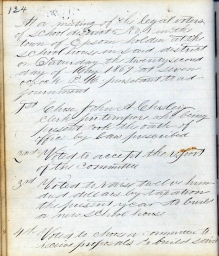 124
At a meeting of the legal voters
of School district No 4 in the
town of Epsom holden at the
school house in said district
on Saturday the twenty second
day of May 1869 at seven
oclock P.M. pursuant to ad-
journment
1st Chose John A Chesley
clerk pro tempore he being
present took the oath
of office by law prescribed
2nd Voted to accept the report
of the Committee
3rd Voted to raise twelve hun-
dred dollars by taxation
the present year to build
a new school house
4th Voted to choose a committee to
receive proposals to build said